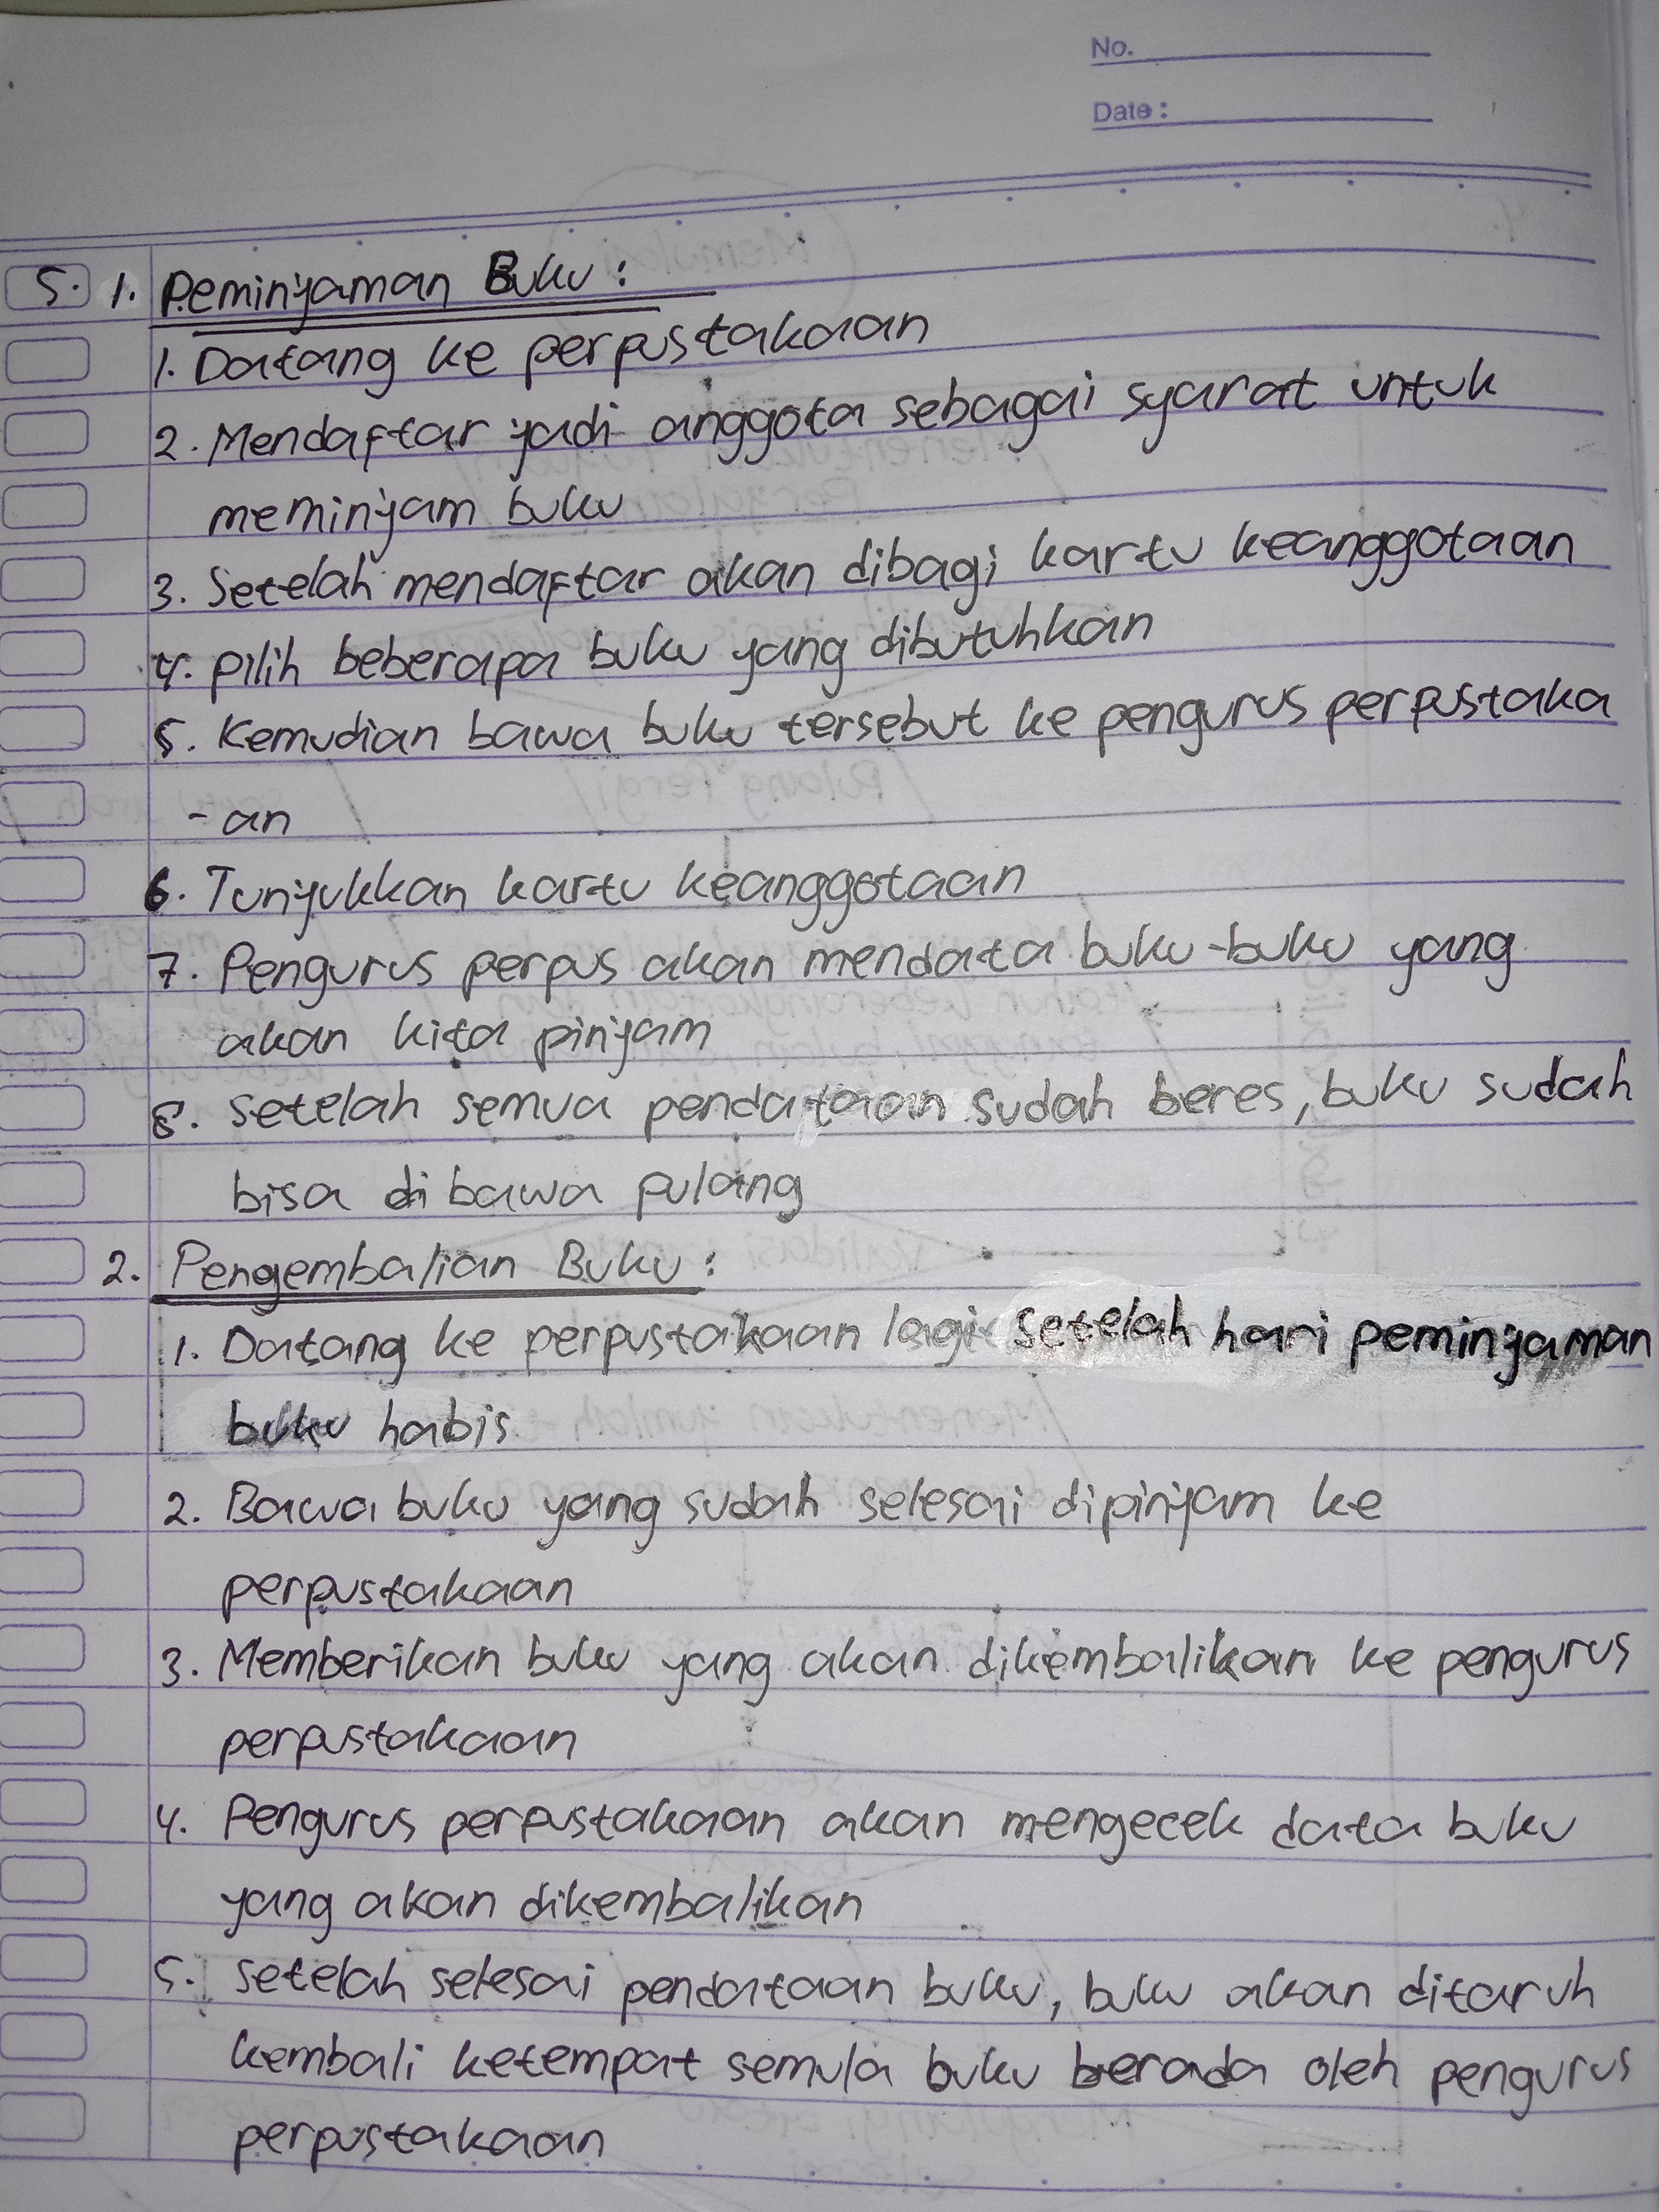 No.
Date :
5. 1. Peminjaman Buku :
1. Datang ke perpustakaan
2. Mendaftar jadi anggota sebagai syarat untuk
meminjam buku
3. Setelah mendaftar akan dibagi kartu keanggotaan
4. pilih beberapa buku yang dibutuhkan
5. Kemudian bawa buku tersebut ke pengurus perpustaka
- an
6. Tunjukkan kartu keanggotaan
7. Pengurus perpus akan mendata buku-buku yang
akan kita pinjam
8. setelah semua pendataan sudah beres, buku sudah
bisa di bawa pulang
2. Pengembalian Buku :
1. Datang ke perpustakaan lagi setelah hari peminjaman
buku habis
2. Bawa buku yang sudah selesai dipinjam ke
perpustakaan
3. Memberikan buku yang akan dikembalikan ke pengurus
perpustakaan
4. Pengurus perpustakaan akan mengecek data buku
yang akan dikembalikan
5. setelah selesai pendataan buku, buku akan ditaruh
kembali ketempat semula buku berada oleh pengurus
perpustakaan